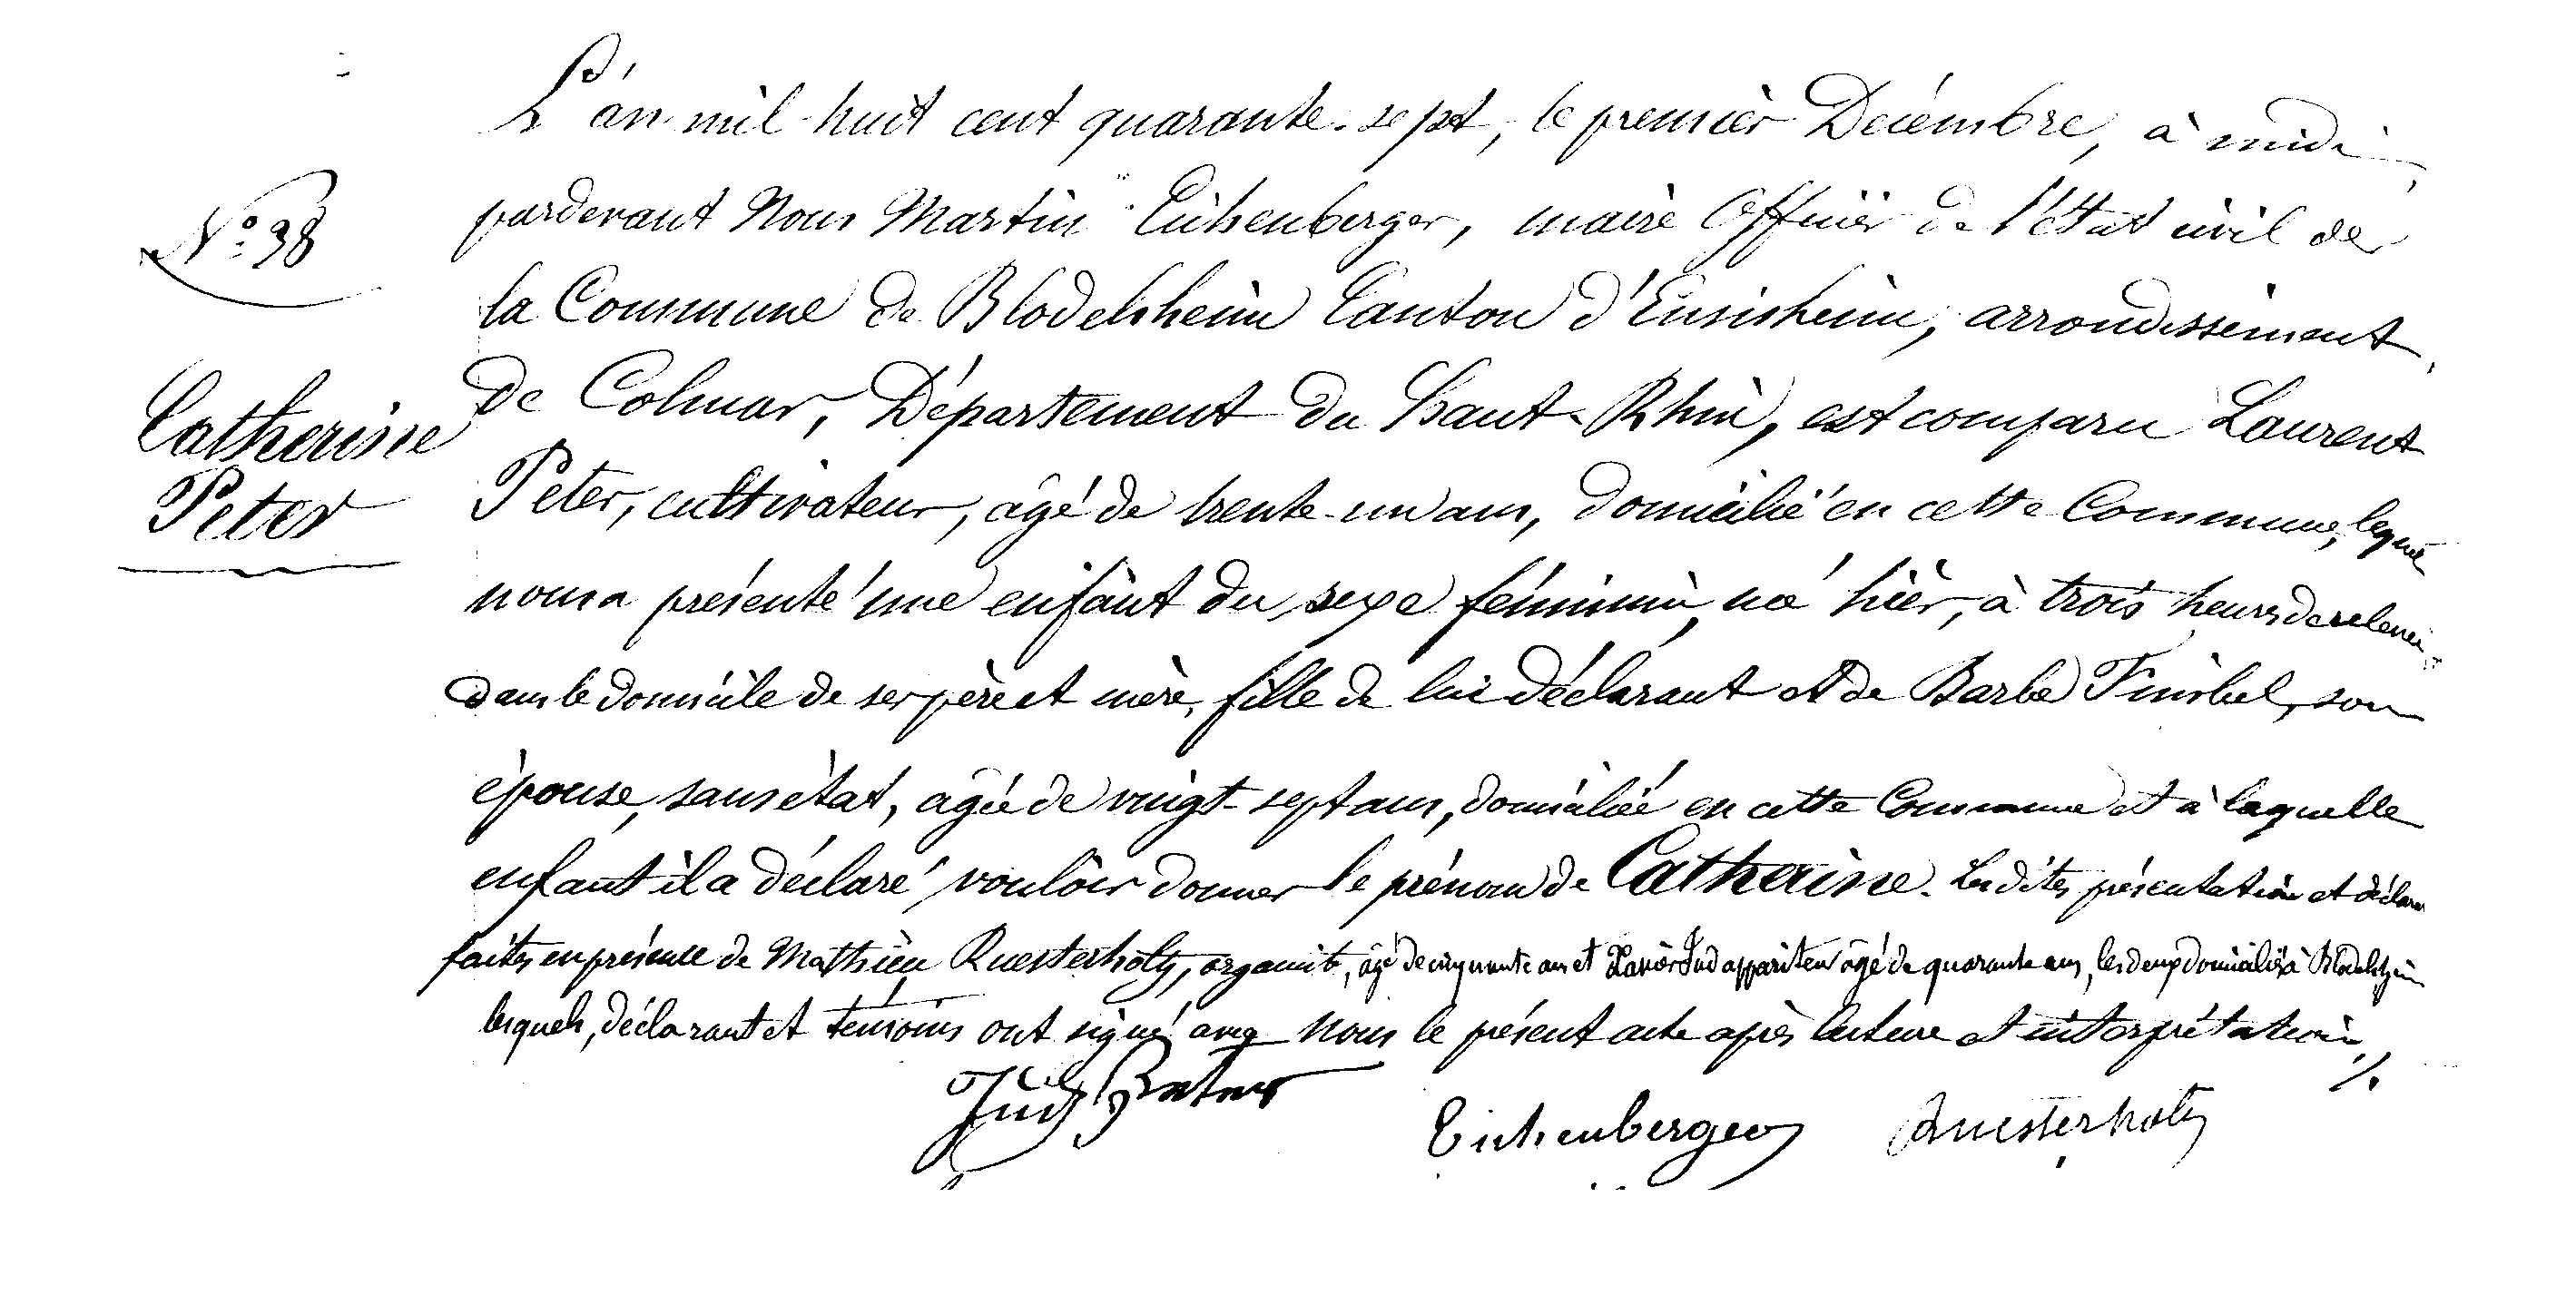 L'an mil huit cent quarante-sept, le premier Décembre, à midi
pardevant Nous Martin Eichenberger, maire Officier de l'état civil de
la Commune de Blodelsheim Canton d'Ensisheim, arrondissement
de Colmar, Département du Haut-Rhin, est comparu Laurent
Peter, cultivateur, âgé de trente-un ans, domicilié en cette Commune, lequel
nous a présenté une enfant du sexe féminin, né hier, à trois heures de relevée
dans le domicile de ses père et mère, fille de lui déclarant et de Barbe son
épouse, sans état, agée de vingt-sept ans, domiciliée en cette Commune et à laquelle
enfant il a déclaré vouloir donner le prénom de Catherine. Les dites présentation et
faites en présence de Mathieu Ruesterholtz, organiste, âgé de cinquante ans et Xavier Jud appariteur âgé de quarante ans, les deux domiciliés à Blodelsheim
lesquels, déclarant et témoins ont signé avec Nous le présent acte après lecture et interprétation ./.
Jud Peter
Eichenberger Ruesterholtz
N.º 98
Catherine
Peter